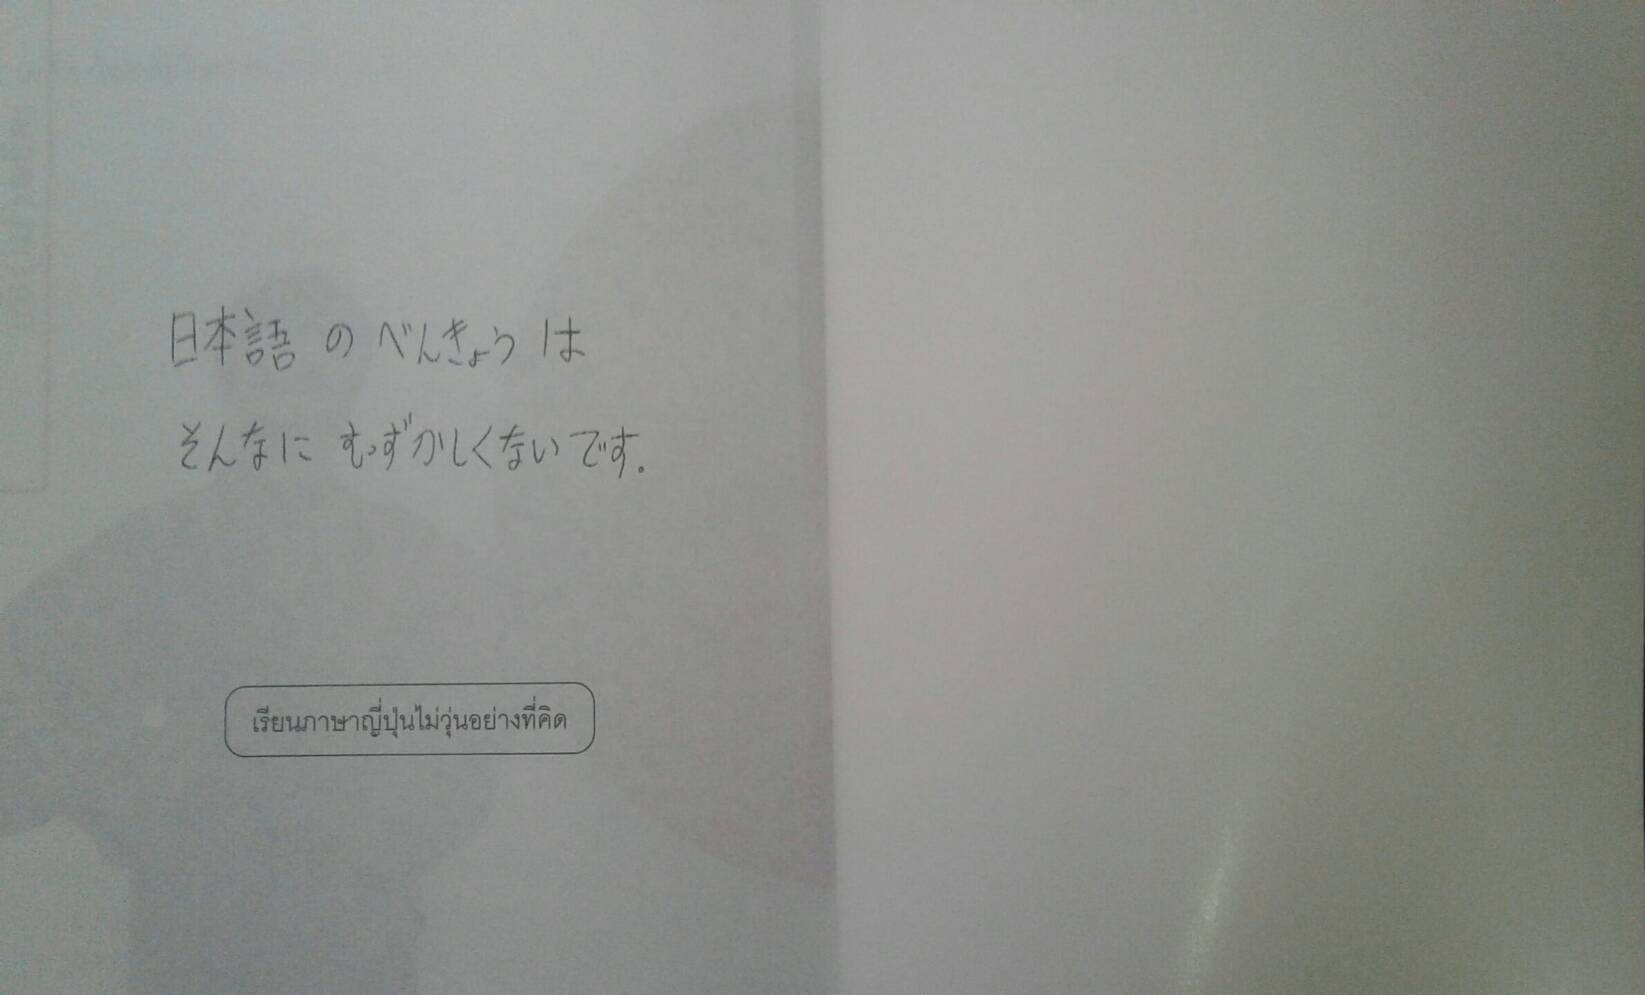 日本語 の べんきょう は
そんなに むずかしくないです。
เรียนภาษาญี่ปุ่นไม่วุ่นอย่างที่คิด